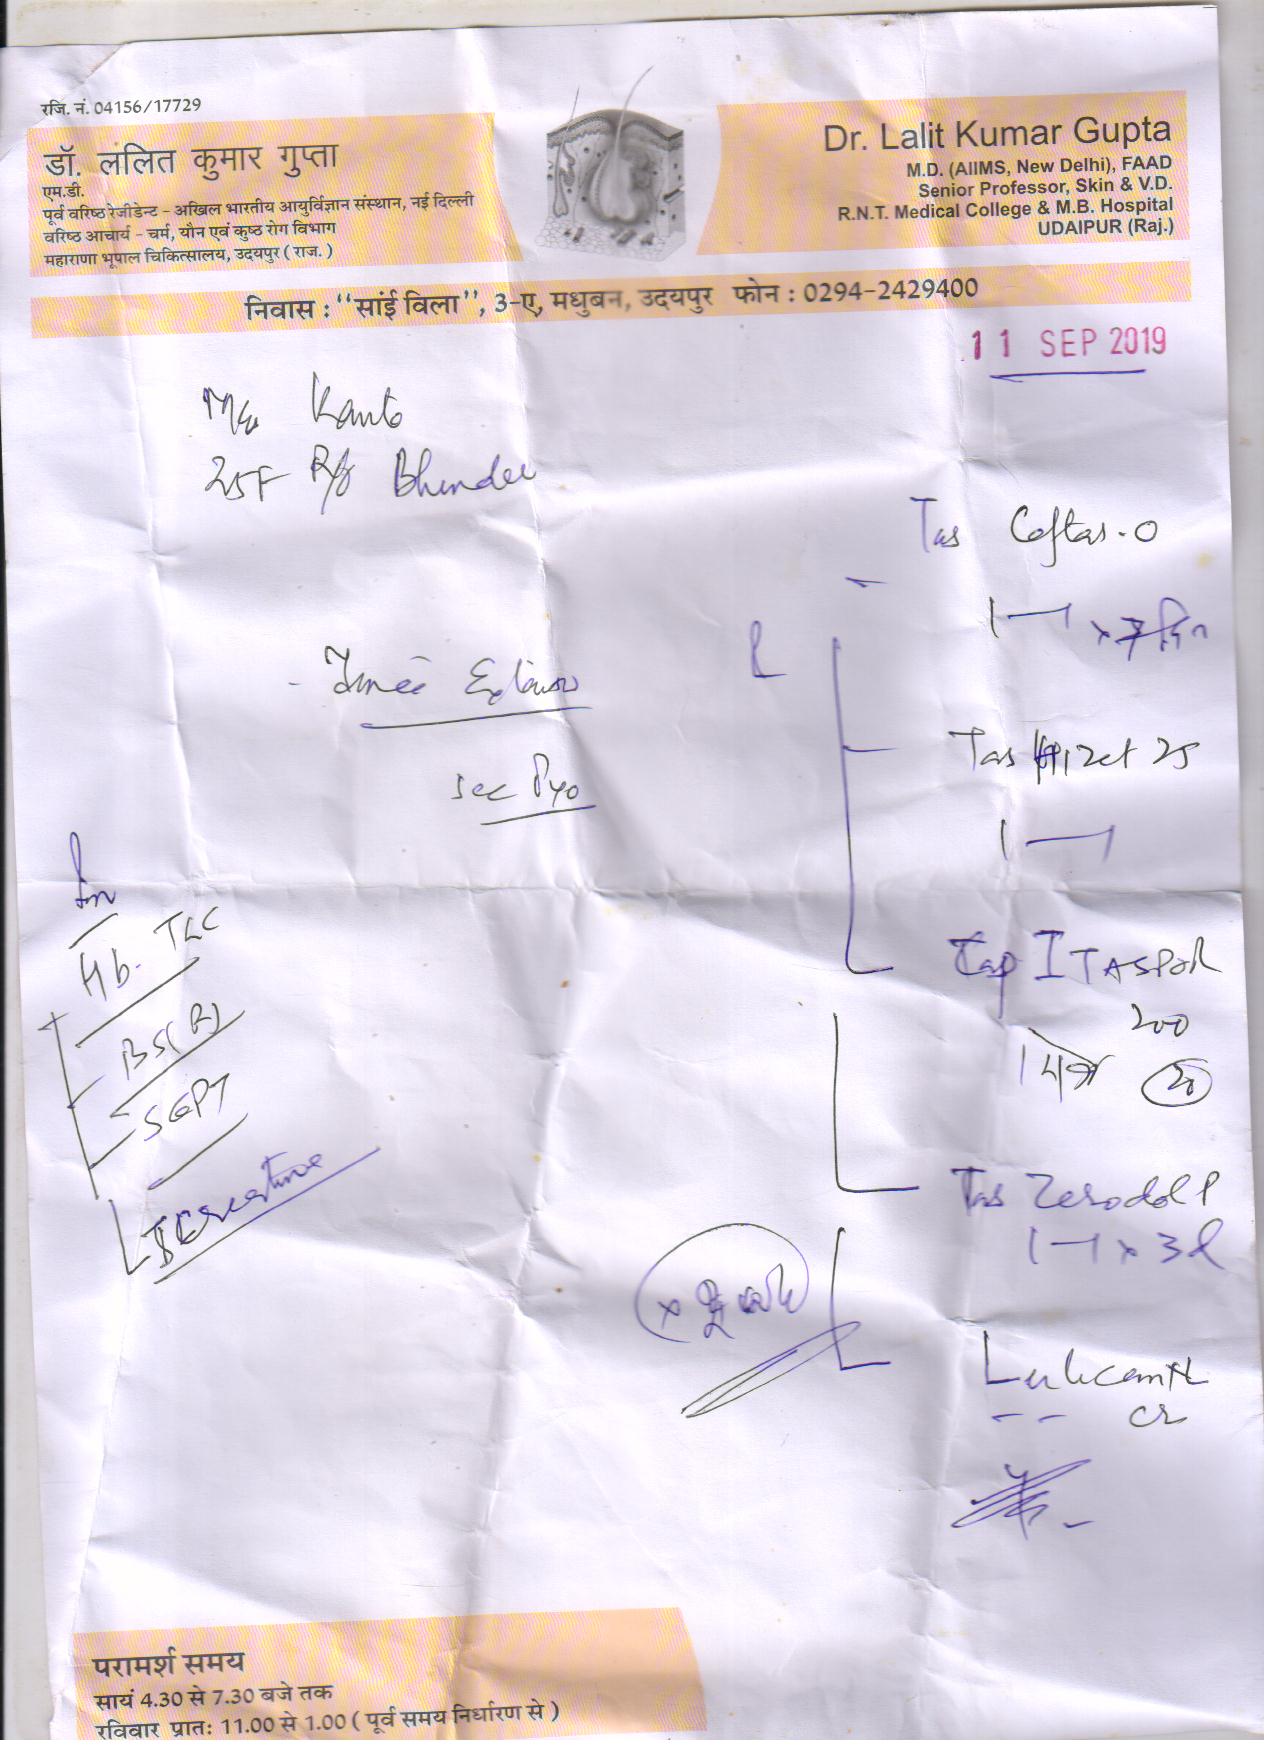 रजि. नं. 04156/17729
डॉ. ललित कुमार गुप्ता
एम.डी.
पूर्व वरिष्ठ रेजीडेन्ट - अखिल भारतीय आयुर्विज्ञान संस्थान, नई दिल्ली
वरिष्ठ आचार्य - चर्म, यौन एवं कुष्ठ रोग विभाग
महाराणा भूपाल चिकित्सालय, उदयपुर ( राज. )
Dr. Lalit Kumar Gupta
M.D. (AIIMS, New Delhi), FAAD
Senior Professor, Skin & V.D.
R.N.T. Medical College & M.B. Hospital
UDAIPUR (Raj.)
निवास : ‘‘सांई विला’’, 3-ए, मधुबन, उदयपुर फोन : 0294-2429400
11 SEP 2019
25F R/o Bhinder
Sec Pyo
Hb. TLC
BS(R)
SGPT
S Creatinine
Tab Ceftas-O
1—1 x 7 दिन
Tab Hizet 25
1—1
Cap ITASPOR
200
Tab Zerodol P
1—1 x 3d
परामर्श समय
सायं 4.30 से 7.30 बजे तक
रविवार प्रातः 11.00 से 1.00 ( पूर्व समय निर्धारण से )